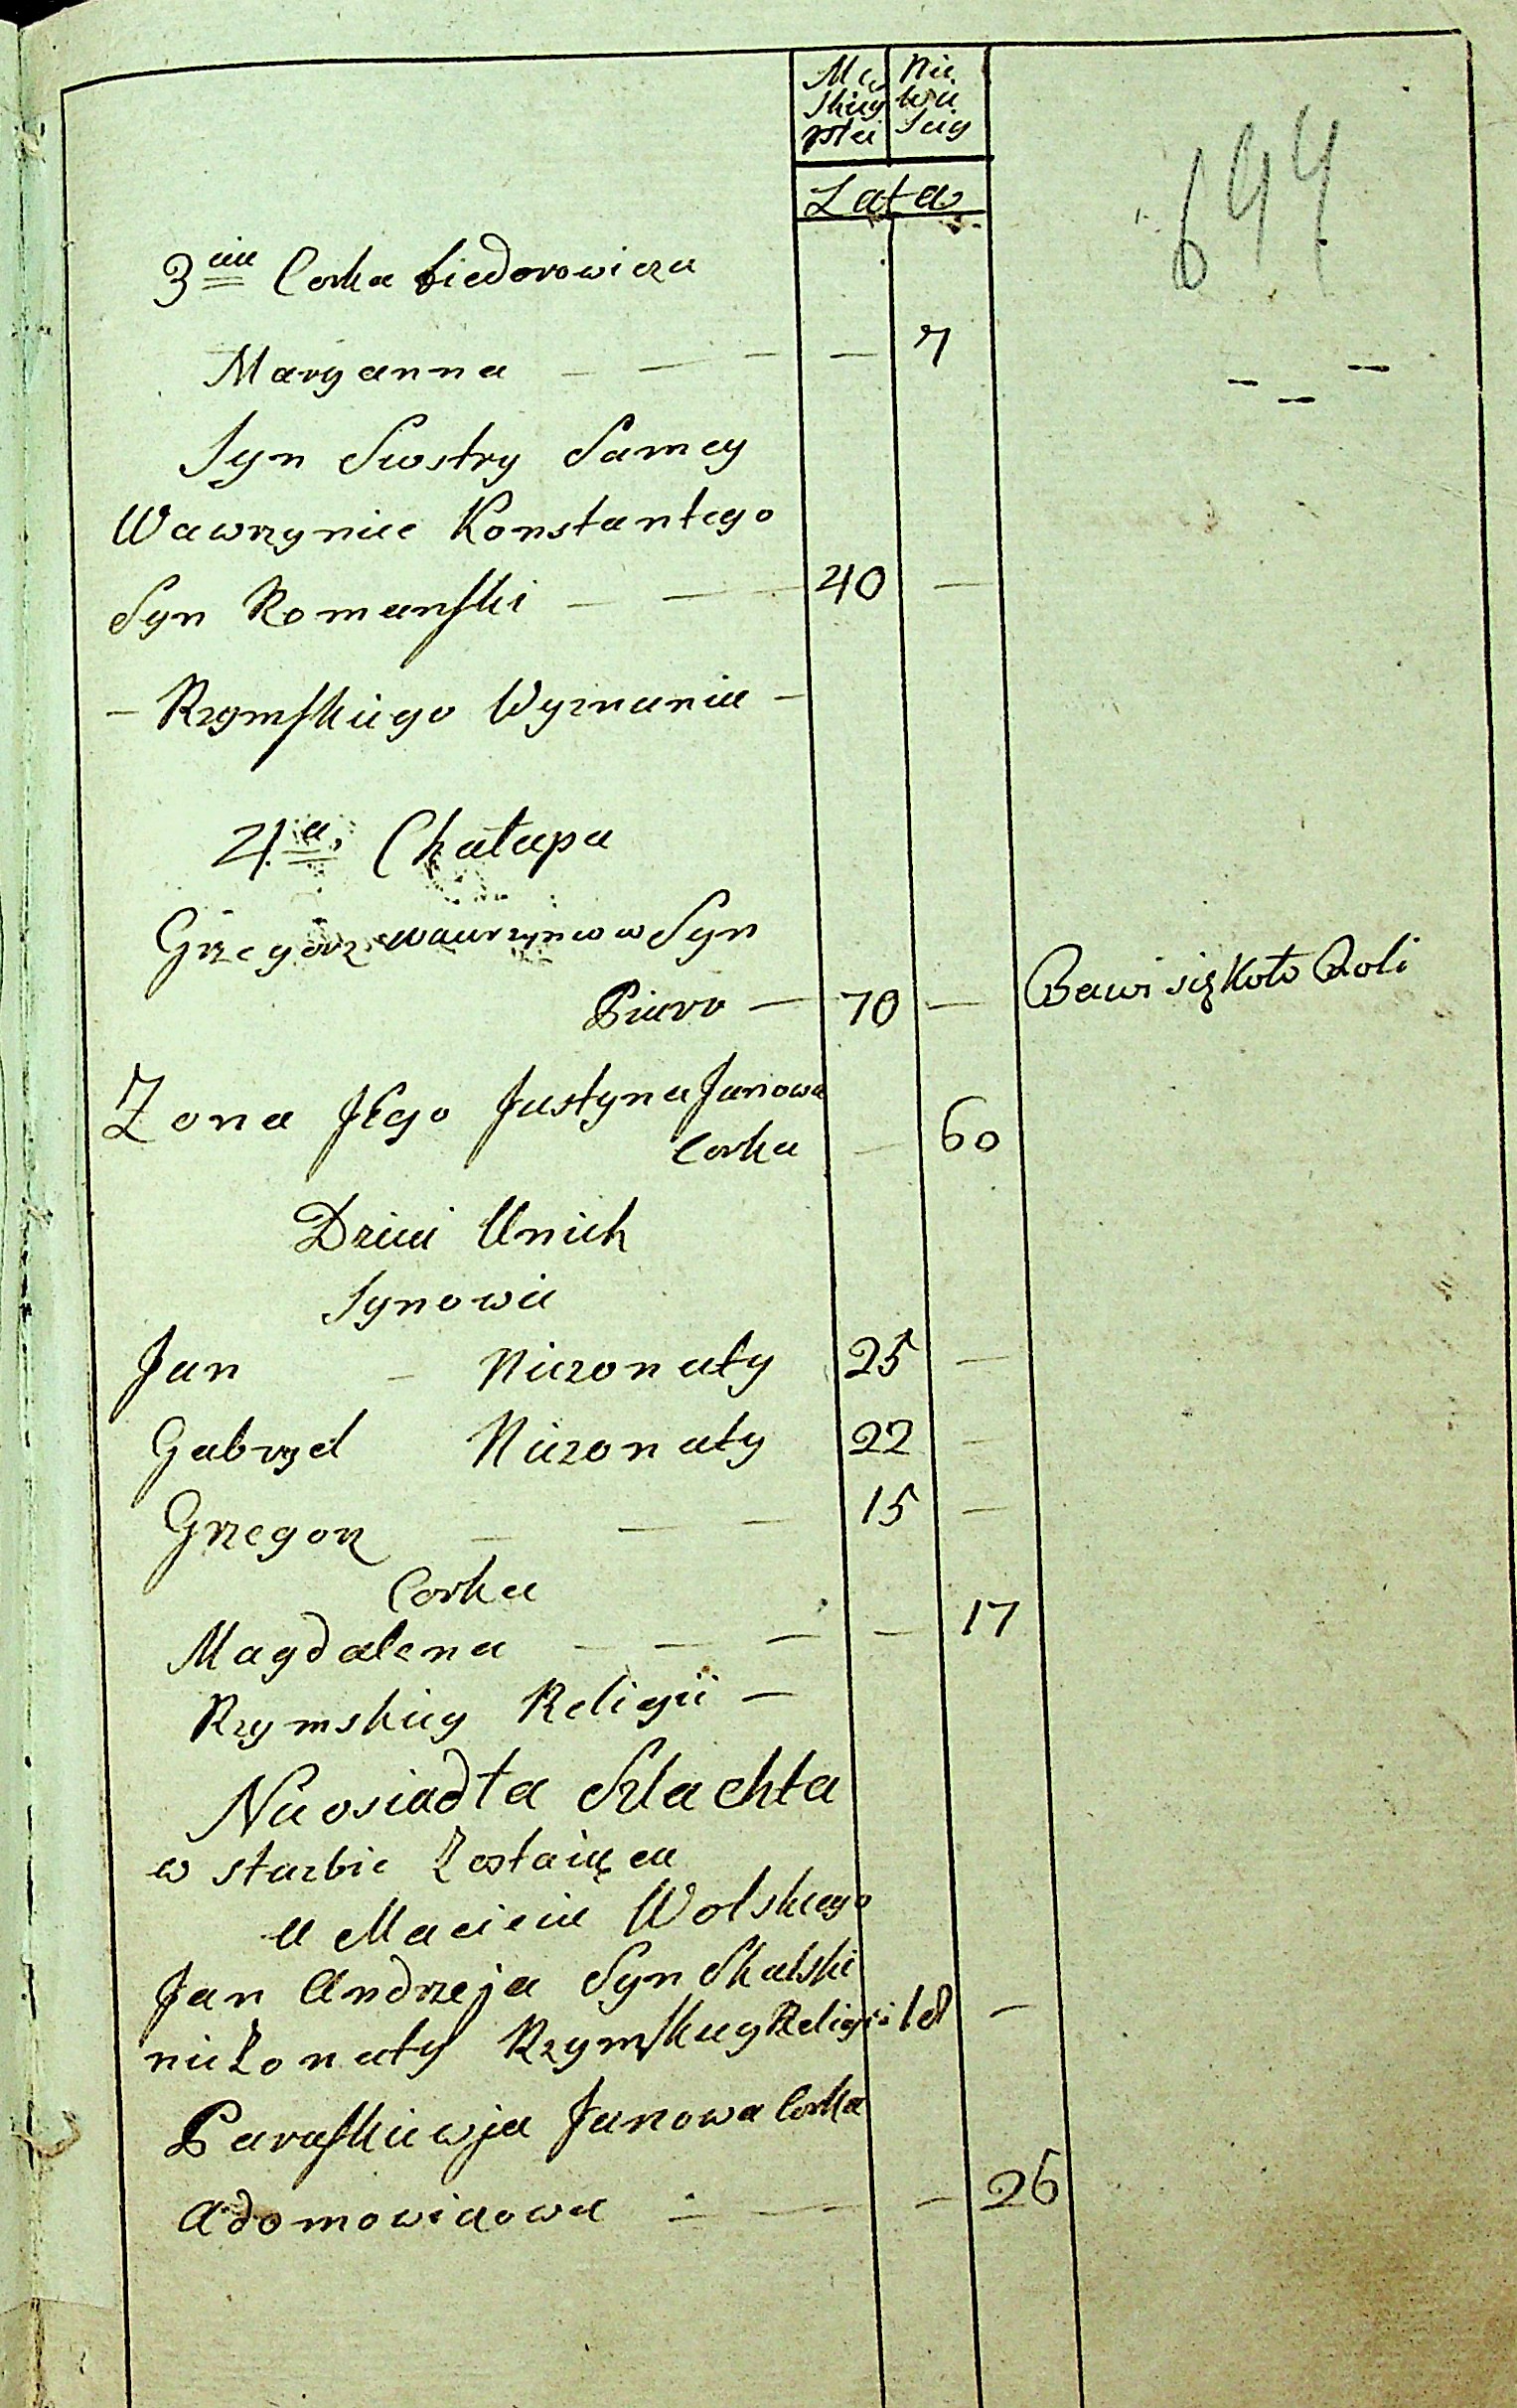 Mę Nie
skiey wie
płci sciey
Lata
644
3cia Corka Fiedorowicza
Maryanna — — — — 7
Syn Siostry Samey
Wawrzyniec Konstantego
Syn Romanski — — — 40 —
— Rzymskiego Wyznania —
4.a Chałupa
Grzegorz Wawrzyncow Syn
Piuro — 70 — Bawi się koło Roli
Zona Jego Justyna Janowa
Corka — 60
Dzieci Unich
Synowie
Jan — Niezonaty 25 —
Gabryel Niezonaty 22 —
Grzegorz — — — 15 —
Corka
Magdalena — — — — 17
Rzymskiey Religii —
Nieosiadła Szlachta
w służbie Zostaiąca
U Macieia Wolskiego
Jan Andrzeja Syn Skalski
nieżonaty Rzymskiey Religii 18 —
Paraskiewja Janowa Corka
Adomowiczowa — — — 26